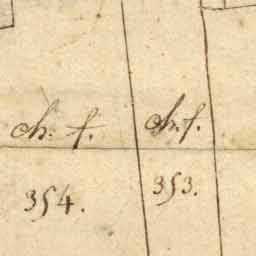 ch. f. ch. f.
354. 353.